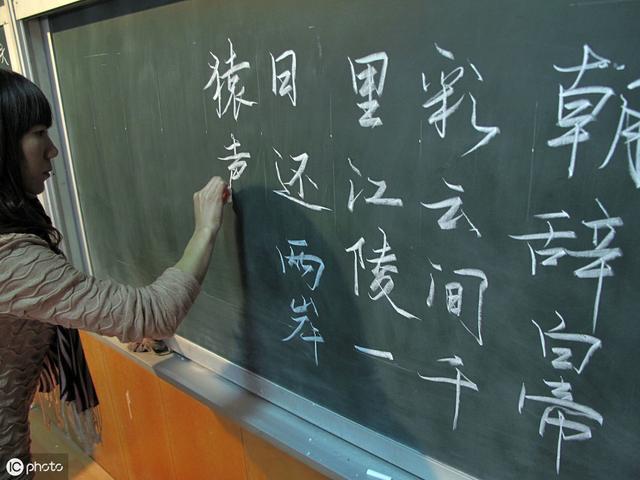 朝辞白帝
彩云间千
里江陵一
日还两岸
猿声
photo